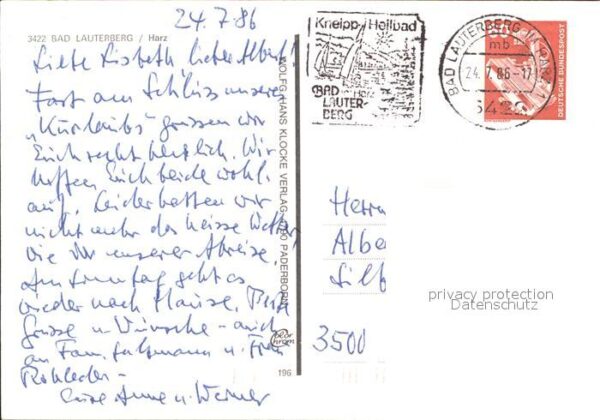 24.7.86
3422 BAD LAUTERBERG / Harz
Liebe Lisbeth lieber Albert!
Fast am Schluss unseres
"Kurlaubs" grüssen wir
Euch recht herzlich. Wir
hoffen, Euch beide wohl-
auf. Leider hatten wir
nicht mehr das heisse Wetter
wie vor unserer Abreise.
Am Sonntag geht es
wieder nach Hause. Beste
Grüsse u. Wünsche - auch
an Fam. u. Frau
Rohleder -
Eure Anne u. Werner
WOLFG. HANS KLOCKE VERLAG, PADERBORN
color
chrom
196
Kneipp-Heilbad
BAD
LAUTER-
BERG
BAD LAUTERBERG
mb
24.7.86-17
3422
DEUTSCHE BUNDESPOST
Herrn
Albe
Silb
privacy protection
Datenschutz
3500